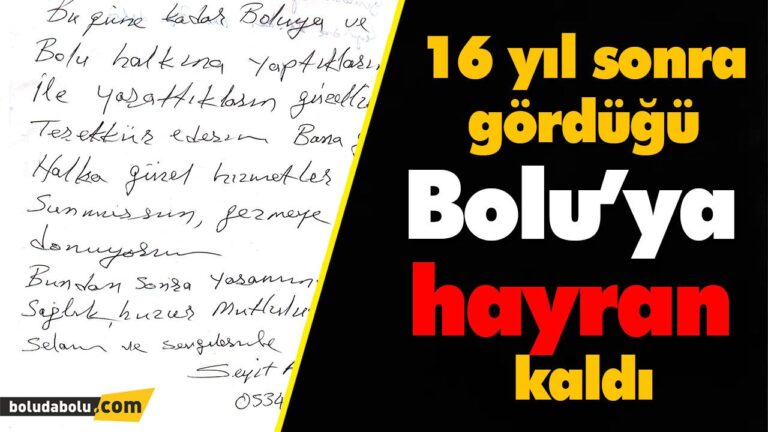 Bu güne kadar Boluya ve
Bolu halkına yaptıkların
ile yarattıkların güzelli
Teşekkür ederim Bana
Halka güzel hizmetler
Sunmuşsun, gezmeye
donuyorsun
Bundan sonra yaşamın
Sağlık, huzur Mutlulu
Selam ve sevgilerimle
Seyit
0534
boludabolu.com
16 yıl sonra
gördüğü
Bolu'ya
hayran
kaldı